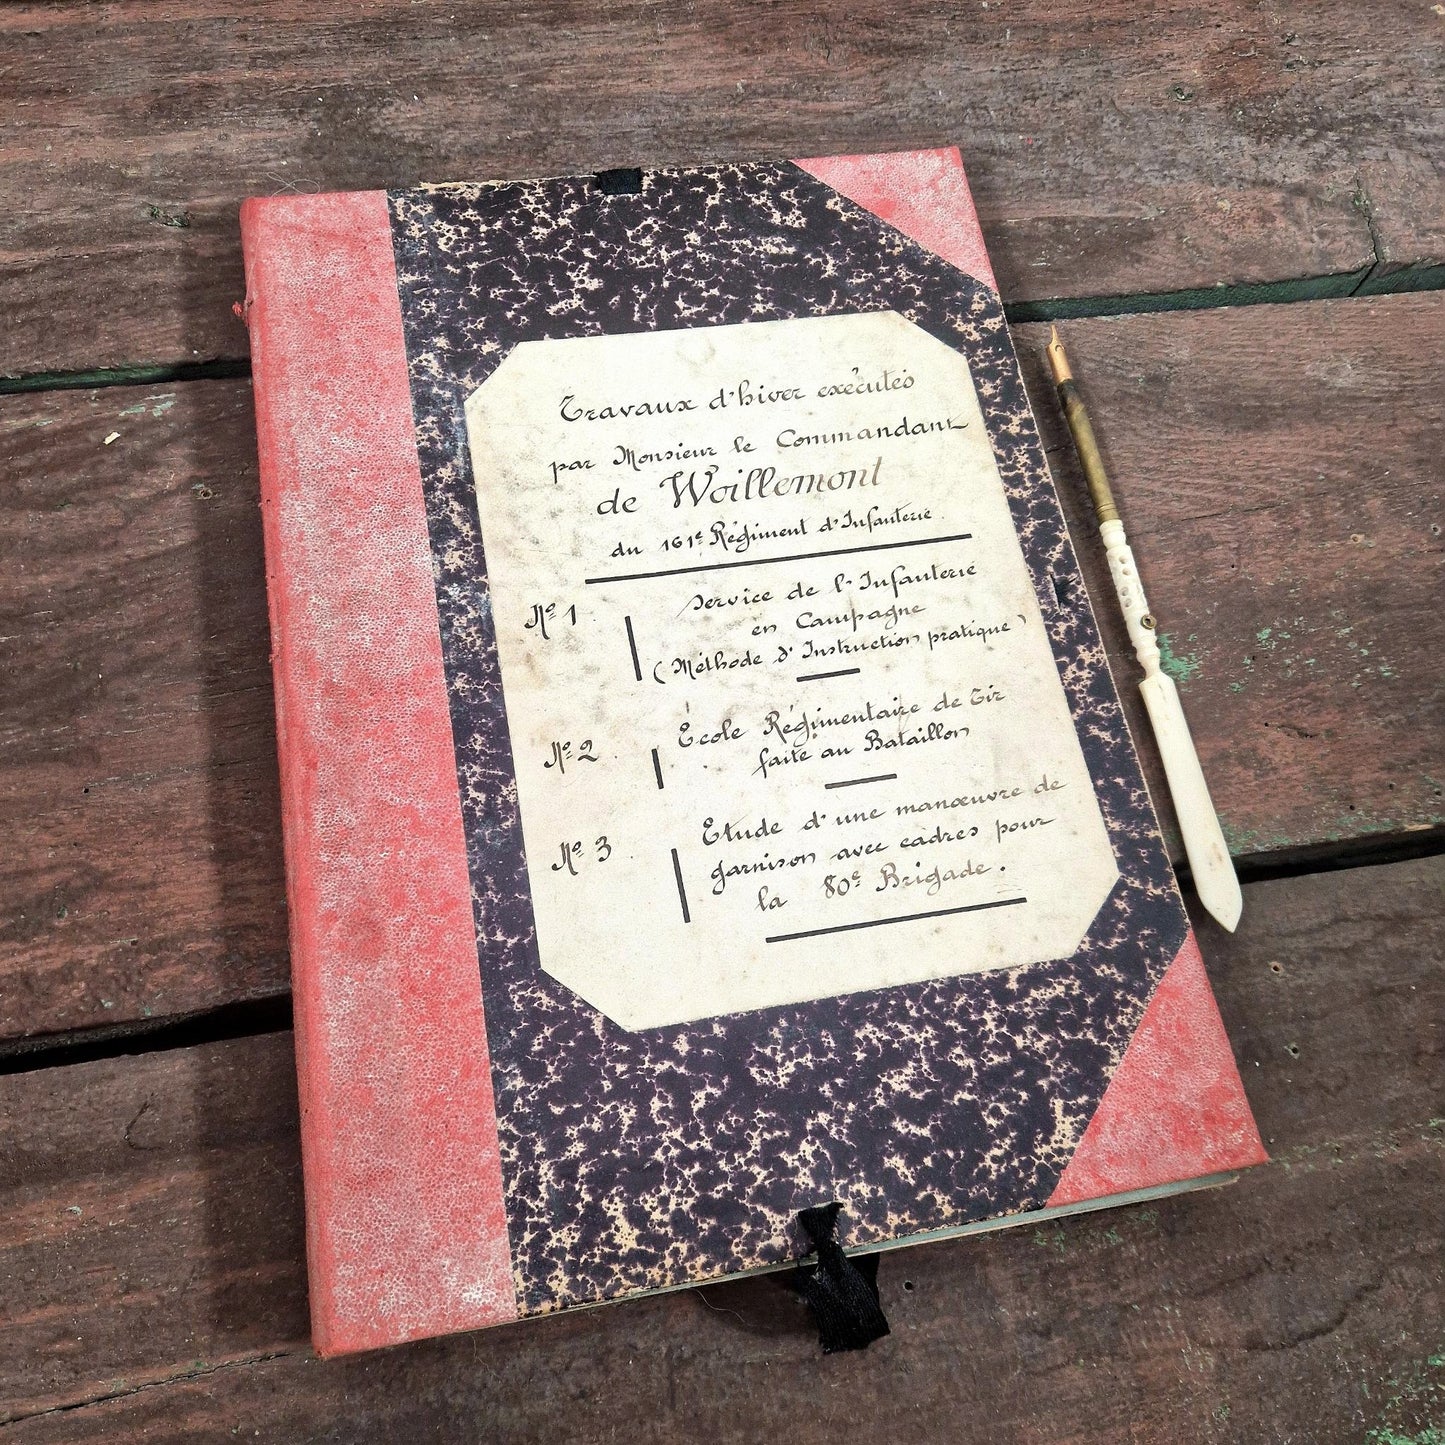 Travaux d'hiver exécutés
par Monsieur le Commandant
de Woillemont
du 161e Régiment d'Infanterie.
No 1. Service de l'Infanterie
en Campagne
(Méthode d'Instruction pratique)
No 2. École Régimentaire de Tir
faite au Bataillon
No 3. Etude d'une manœuvre de
garnison avec cadres pour
la 80e Brigade.